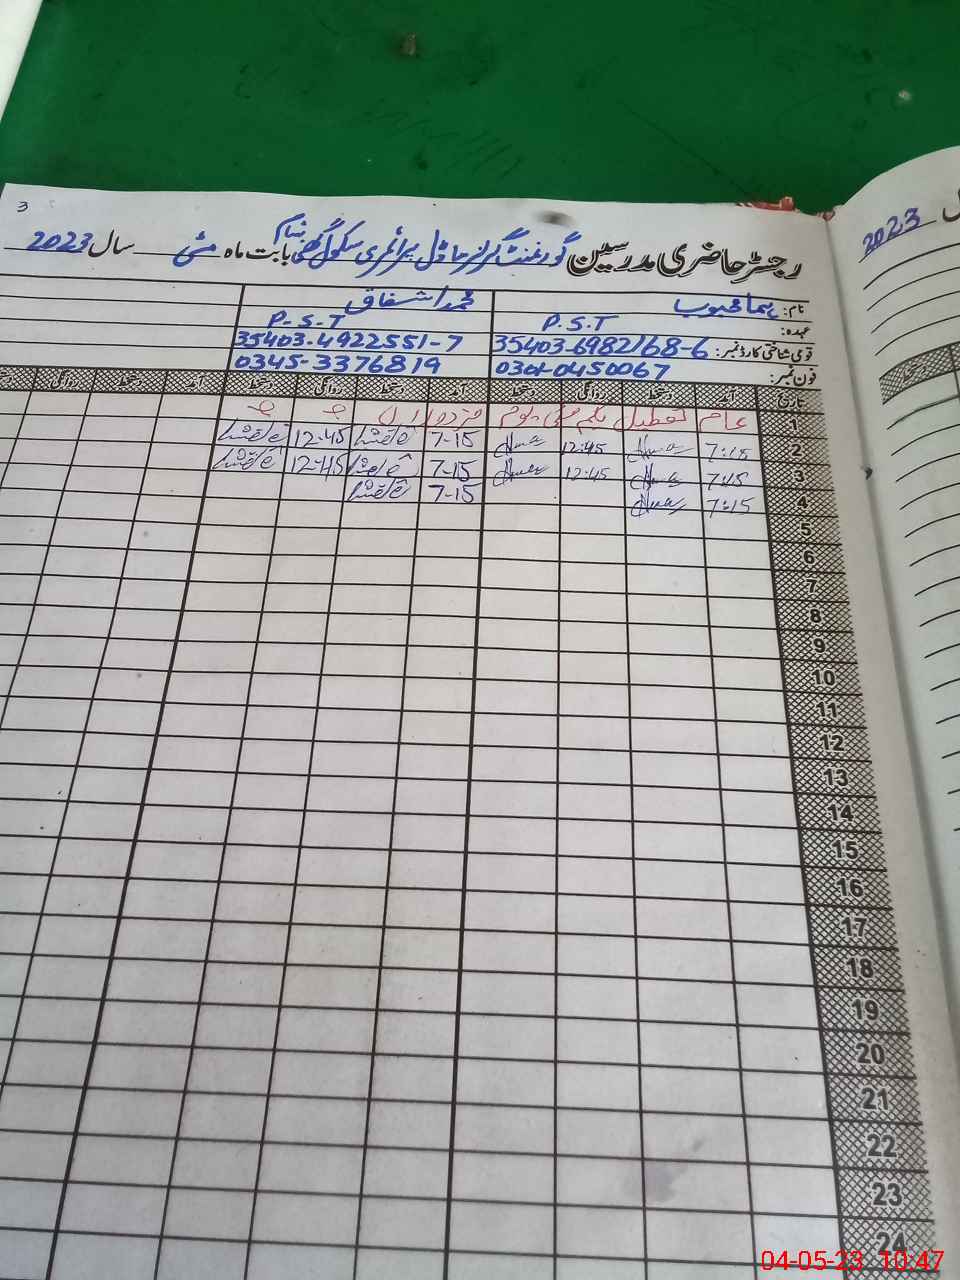 3
رجسٹر حاضری مدرسین گورنمنٹ گرلز ماڈل پرائمری سکول بابت ماہ مئی سال 2023
2023
نام: ہما محبوب محمد اشفاق
عہدہ: P.S.T P-S-T
قومی شناختی کارڈ نمبر: 35403-6982168-6 35403-4922551-7
فون نمبر: 0301-0450067 0345-3376819
تاریخ آمد دستخط روانگی دستخط آمد دستخط روانگی دستخط آمد دستخط روانگی
1 عام تعطیل یکم مئی یوم مزدوراں
2 7:15 Huma 12:45 Huma 7-15 12:45
3 7:15 Huma 12:45 Huma 7-15 12:45
4 7:15 Huma 7-15
5
6
7
8
9
10
11
12
13
14
15
16
17
18
19
20
21
22
23
24
04-05-23 10:47